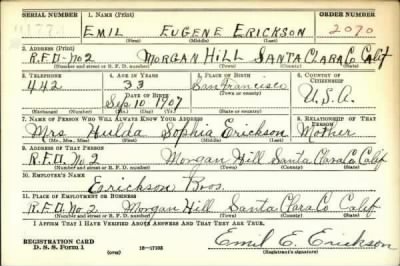 SERIAL NUMBER 1. NAME (Print) ORDER NUMBER
EMIL EUGENE ERICKSON 2070
(First) (Middle) (Last)
2. ADDRESS (Print)
R.F.D-No2 MORGAN HILL SANTA CLARA Co. Calif
(Number and street or R. F. D. number) (Town) (County) (State)
3. TELEPHONE 4. AGE IN YEARS 5. PLACE OF BIRTH 6. COUNTRY OF CITIZENSHIP
442 33 San Francisco
DATE OF BIRTH (Town or county)
Sep. 10 1907 U.S.A.
(Mo.) (Day) (Yr.) (State or country)
7. NAME OF PERSON WHO WILL ALWAYS KNOW YOUR ADDRESS 8. RELATIONSHIP OF THAT PERSON
Mrs Hulda Sophia Erickson Mother
(Mr., Mrs., Miss) (First) (Middle) (Last)
9. ADDRESS OF THAT PERSON
R.F.D. No. 2 Morgan Hill Santa Clara Co Calif
(Number and street or R. F. D. number) (Town) (County) (State)
10. EMPLOYER'S NAME
Erickson Bros.
11. PLACE OF EMPLOYMENT OR BUSINESS
R.F.D. No. 2 Morgan Hill Santa Clara Co Calif
(Number and street or R. F. D. number) (Town) (County) (State)
I AFFIRM THAT I HAVE VERIFIED ABOVE ANSWERS AND THAT THEY ARE TRUE.
REGISTRATION CARD
D. S. S. Form 1 (over) Emil E. Erickson
(Registrant's signature)